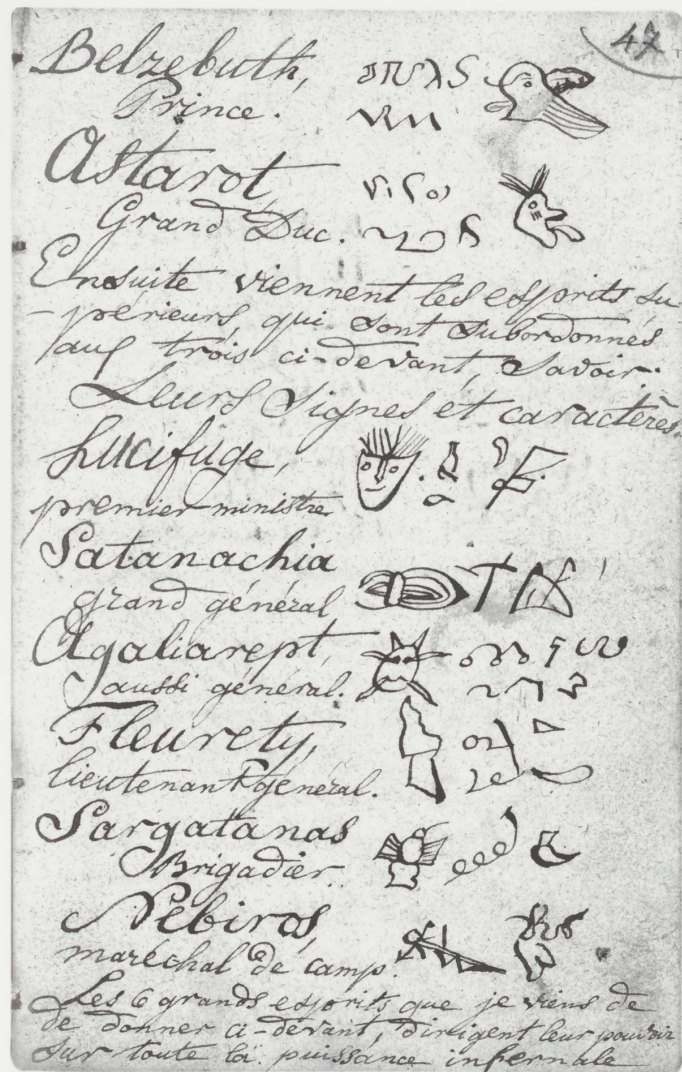 47
Belzebuth,
Prince.
Astarot,
Grand Duc.
Ensuite viennent les esprits su-
-périeurs, qui sont subordonnés
aux trois ci-devant, Savoir:
Leurs Signes et caractères.
Lucifuge,
premier ministre
Satanachia
grand général
Agaliarept,
aussi général.
Fleurety,
lieutenant général.
Sargatanas
Brigadier
Nébiros,
maréchal de camp.
Les 6 grands esprits que je viens de
de donner ci-devant, dirigent leur pouvoir
sur toute la puissance infernale